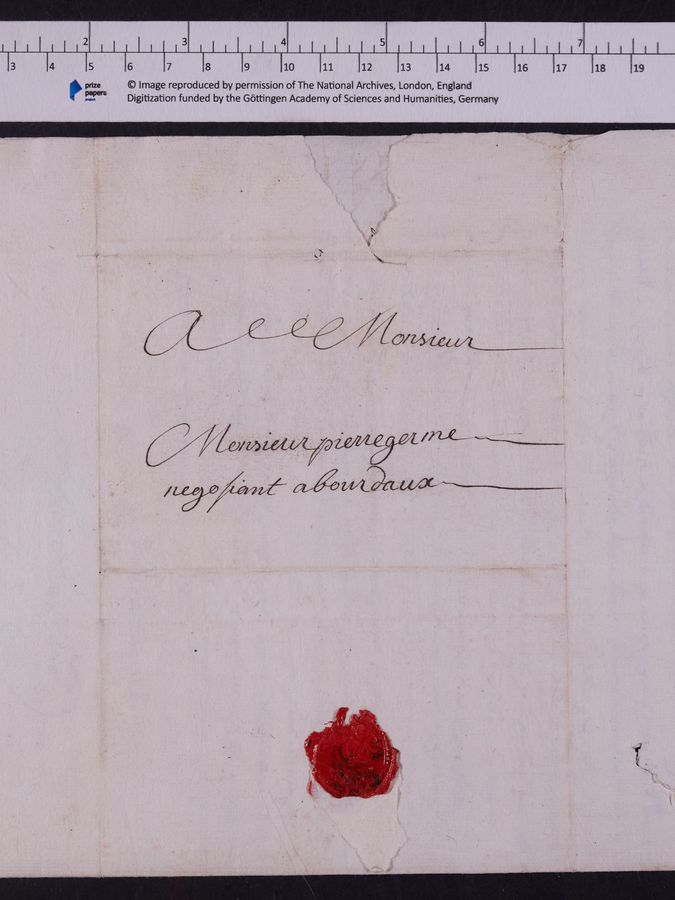 2 3 4 5 6 7
3 4 5 6 7 8 9 10 11 12 13 14 15 16 17 18 19
prize
papers
project
© Image reproduced by permission of The National Archives, London, England
Digitization funded by the Göttingen Academy of Sciences and Humanities, Germany
A Monsieur
Monsieur pierregerme
negosiant abourdaux